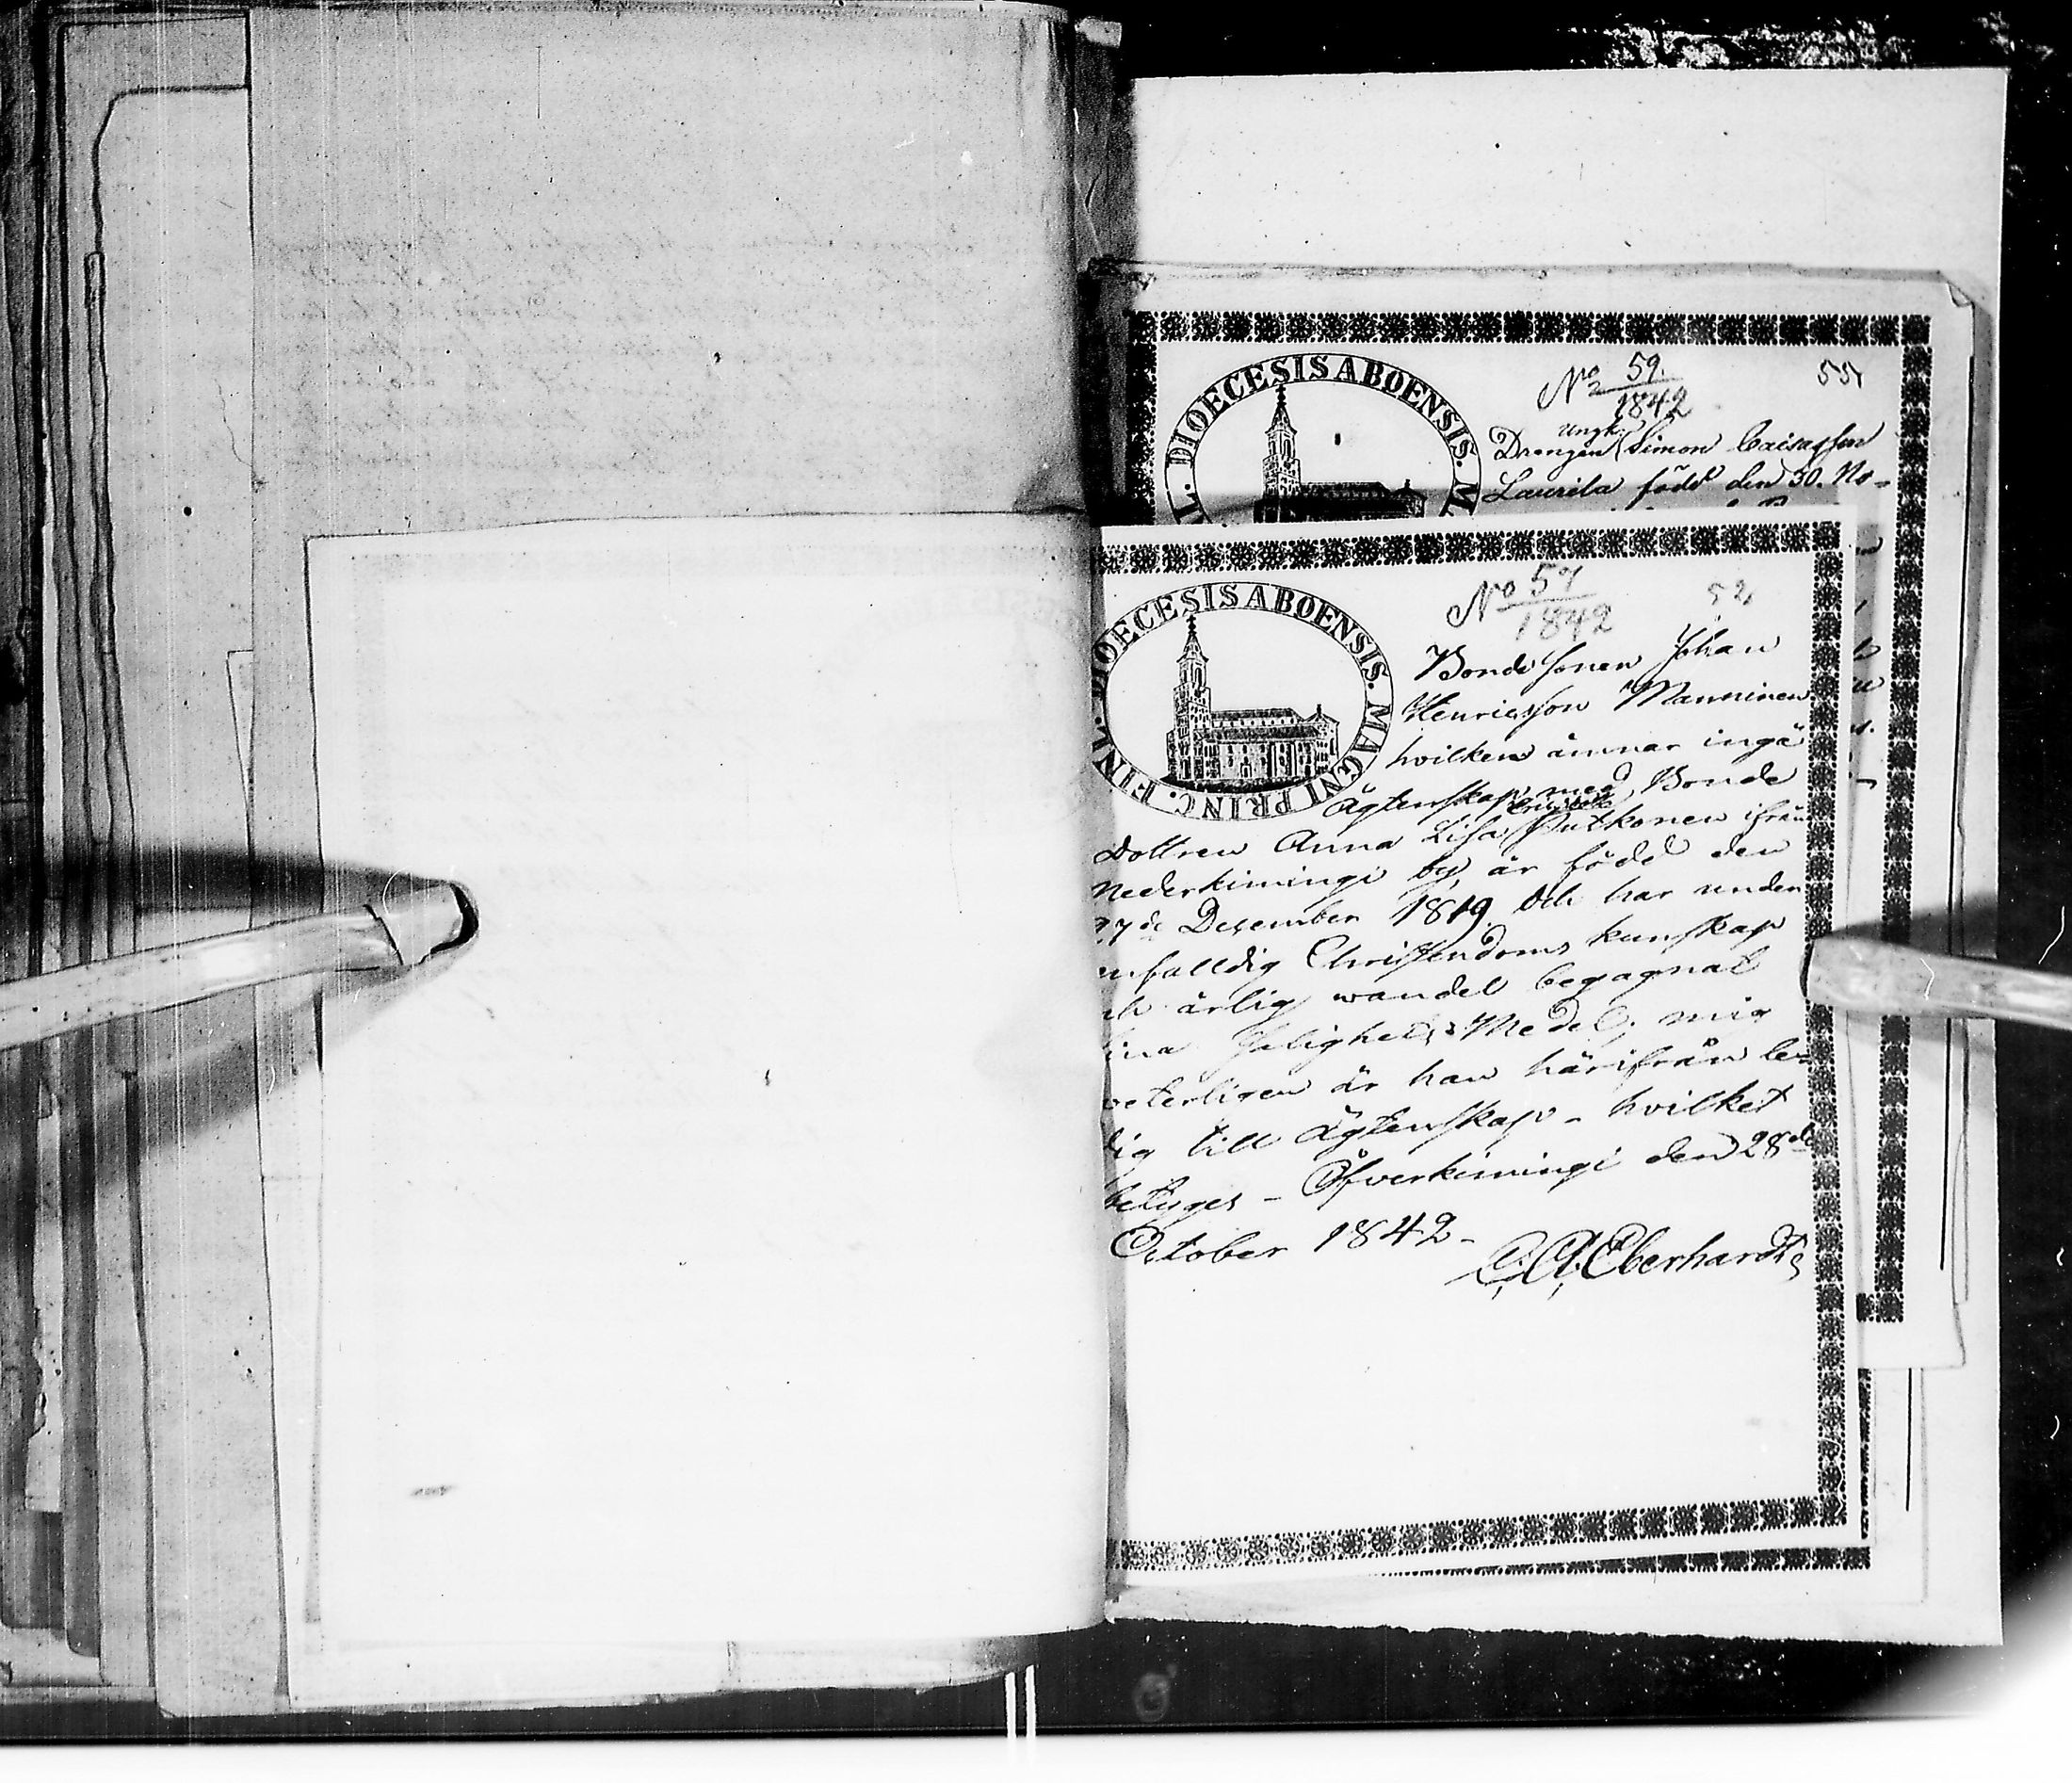 DIOECESIS ABOENSIS. M
No 59.
1842
55
ungk.
Drengen Simon Caisasson
Laurila född den 30. No-
FINL. DIOECESIS ABOENSIS. MAGNI PRINC.
No 57
1842
Bonde sonen Johan
Henricsson Manninen
hvilken ämnar ingå
Ägtenskap med Bonde
Dottren Anna Lisa Putkonen ifrån
Nederkimingi by, är född den
27de Desember 1819 Och har under
nfalldig Christendoms kunskap
ch ärlig wandel begagnat
ina Salighets Medel; mig
veterligen är han härifrån le-
dig till Ägtenskap - hvilket
betyges - Öfverkimingi den 28de
October 1842 -
C. A. Eberhardt